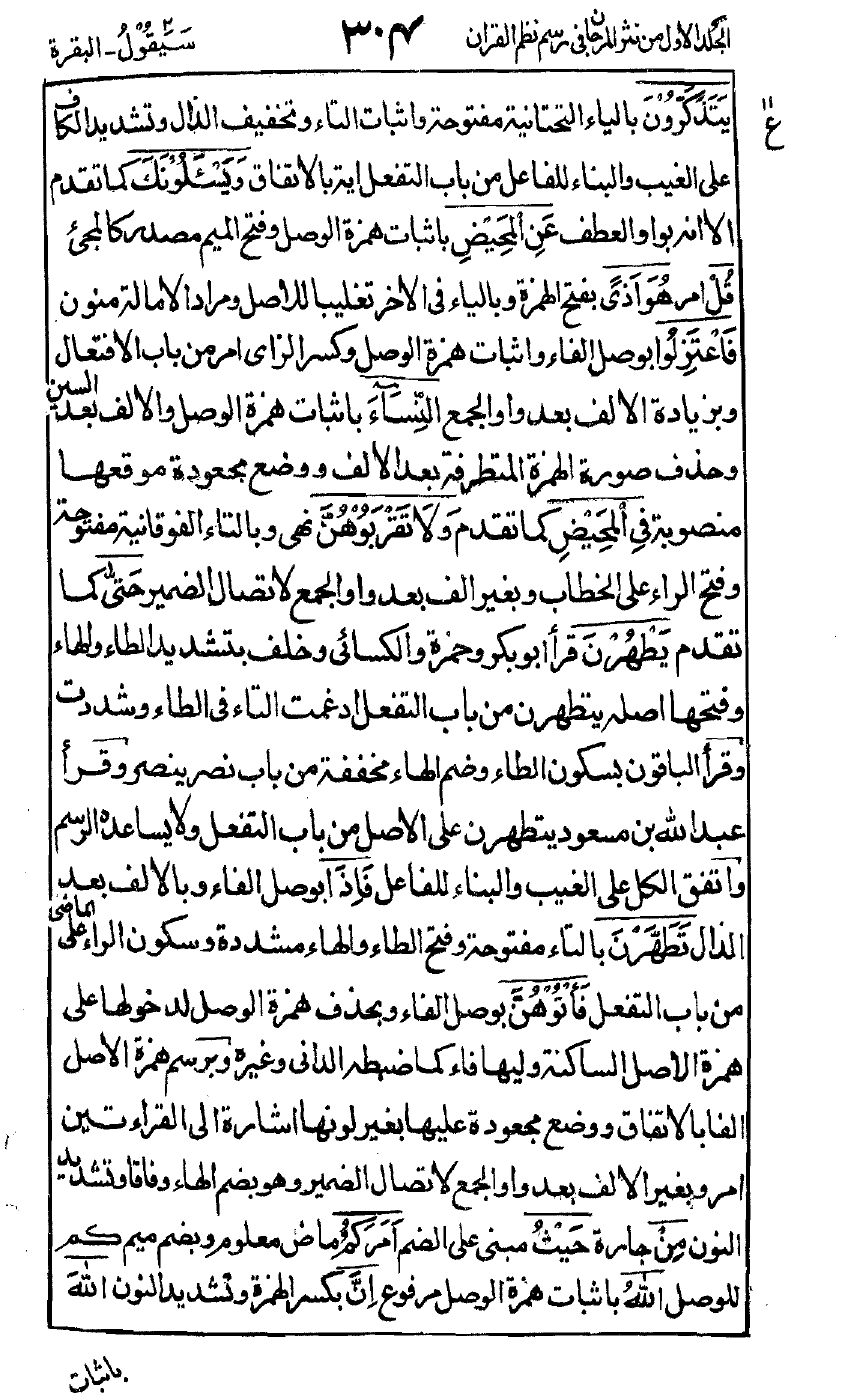 المجلد الاول من نثر المرجان في رسم نظم القران ٣٠٤ سَيَقُوْلُ ٢ - البقرة
يَتَذَكَّرُوْنَ بالياء التحتانية مفتوحة واثبات التاء وتخفيف الذال وتشديد الكاف
على الغيب والبناء للفاعل من باب التفعل اية بالاتفاق وَيَسْـَٔلُوْنَكَ كما تقدم
الا انه بواو العطف عَنِ الْمَحِيْضِ باثبات همزة الوصل وفتح الميم مصدر كالمجئ
قُلْ امر هُوَ اَذًى بفتح الهمزة وبالياء فى الاخر تغليبا للاصل ومراد الامالة منون
فَاعْتَزِلُوا بوصل الفاء واثبات همزة الوصل وكسر الزاى امر من باب الافتعال
وبزيادة الالف بعد واو الجمع النِّسَآءَ باثبات همزة الوصل والالف بعد السين
وحذف صورة الهمزة المتطرفة بعد الالف ووضع مجعودة موقعها
منصوبة فِي الْمَحِيْضِ كما تقدم وَلَا تَقْرَبُوْهُنَّ نهى وبالتاء الفوقانية مفتوحة
وفتح الراء على الخطاب وبغير الف بعد واو الجمع لاتصال الضمير حَتّٰى كما
تقدم يَطْهُرْنَ قرأ ابو بكر وحمزة والكسائى وخلف بتشديد الطاء والهاء
وفتحها اصله يتطهرن من باب التفعل ادغمت التاء فى الطاء وشددت
وقرأ الباقون بسكون الطاء وضم الهاء مخففة من باب نصر ينصر وقرأ
عبد الله بن مسعود يتطهرن على الاصل من باب التفعل ولا يساعده الرسم
واتفق الكل على الغيب والبناء للفاعل فَاِذَا بوصل الفاء وبالالف بعد
الذال تَطَهَّرْنَ بالتاء مفتوحة وفتح الطاء والهاء مشددة وسكون الراء على الماضى
من باب التفعل فَأْتُوْهُنَّ بوصل الفاء وبحذف همزة الوصل لدخولها على
همزة الاصل الساكنة وليها فاء كما ضبطه الدانى وغيره وبرسم همزة الاصل
الفا بالاتفاق ووضع مجعودة عليها بغير لونها اشارة الى القراءتين
امر وبغير الالف بعد واو الجمع لاتصال الضمير وهو بضم الهاء وفاقا وتشديد
النون مِنْ جارة حَيْثُ مبنى على الضم اَمَرَكُمُ ماض معلوم وبضم ميم كم
للوصل اللهُ باثبات همزة الوصل مرفوع اِنَّ بكسر الهمزة وتشديد النون اللهَ
باثبات
ع ١١